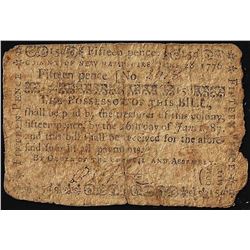 Fifteen pence
COLONY OF NEW HAMPSHIRE June 28 1776
Fifteen pence No.
THE POSSESSOR OF THIS BILL,
shall be paid by the treasurer of this colony,
fifteen pence, by the 26th day of Janr. 87.
and this bill shall be received for the afore-
said sum in all payments.
BY ORDER OF THE COUNCIL AND ASSEMBLY.
FIFTEEN PENCE
FIFTEEN PENCE